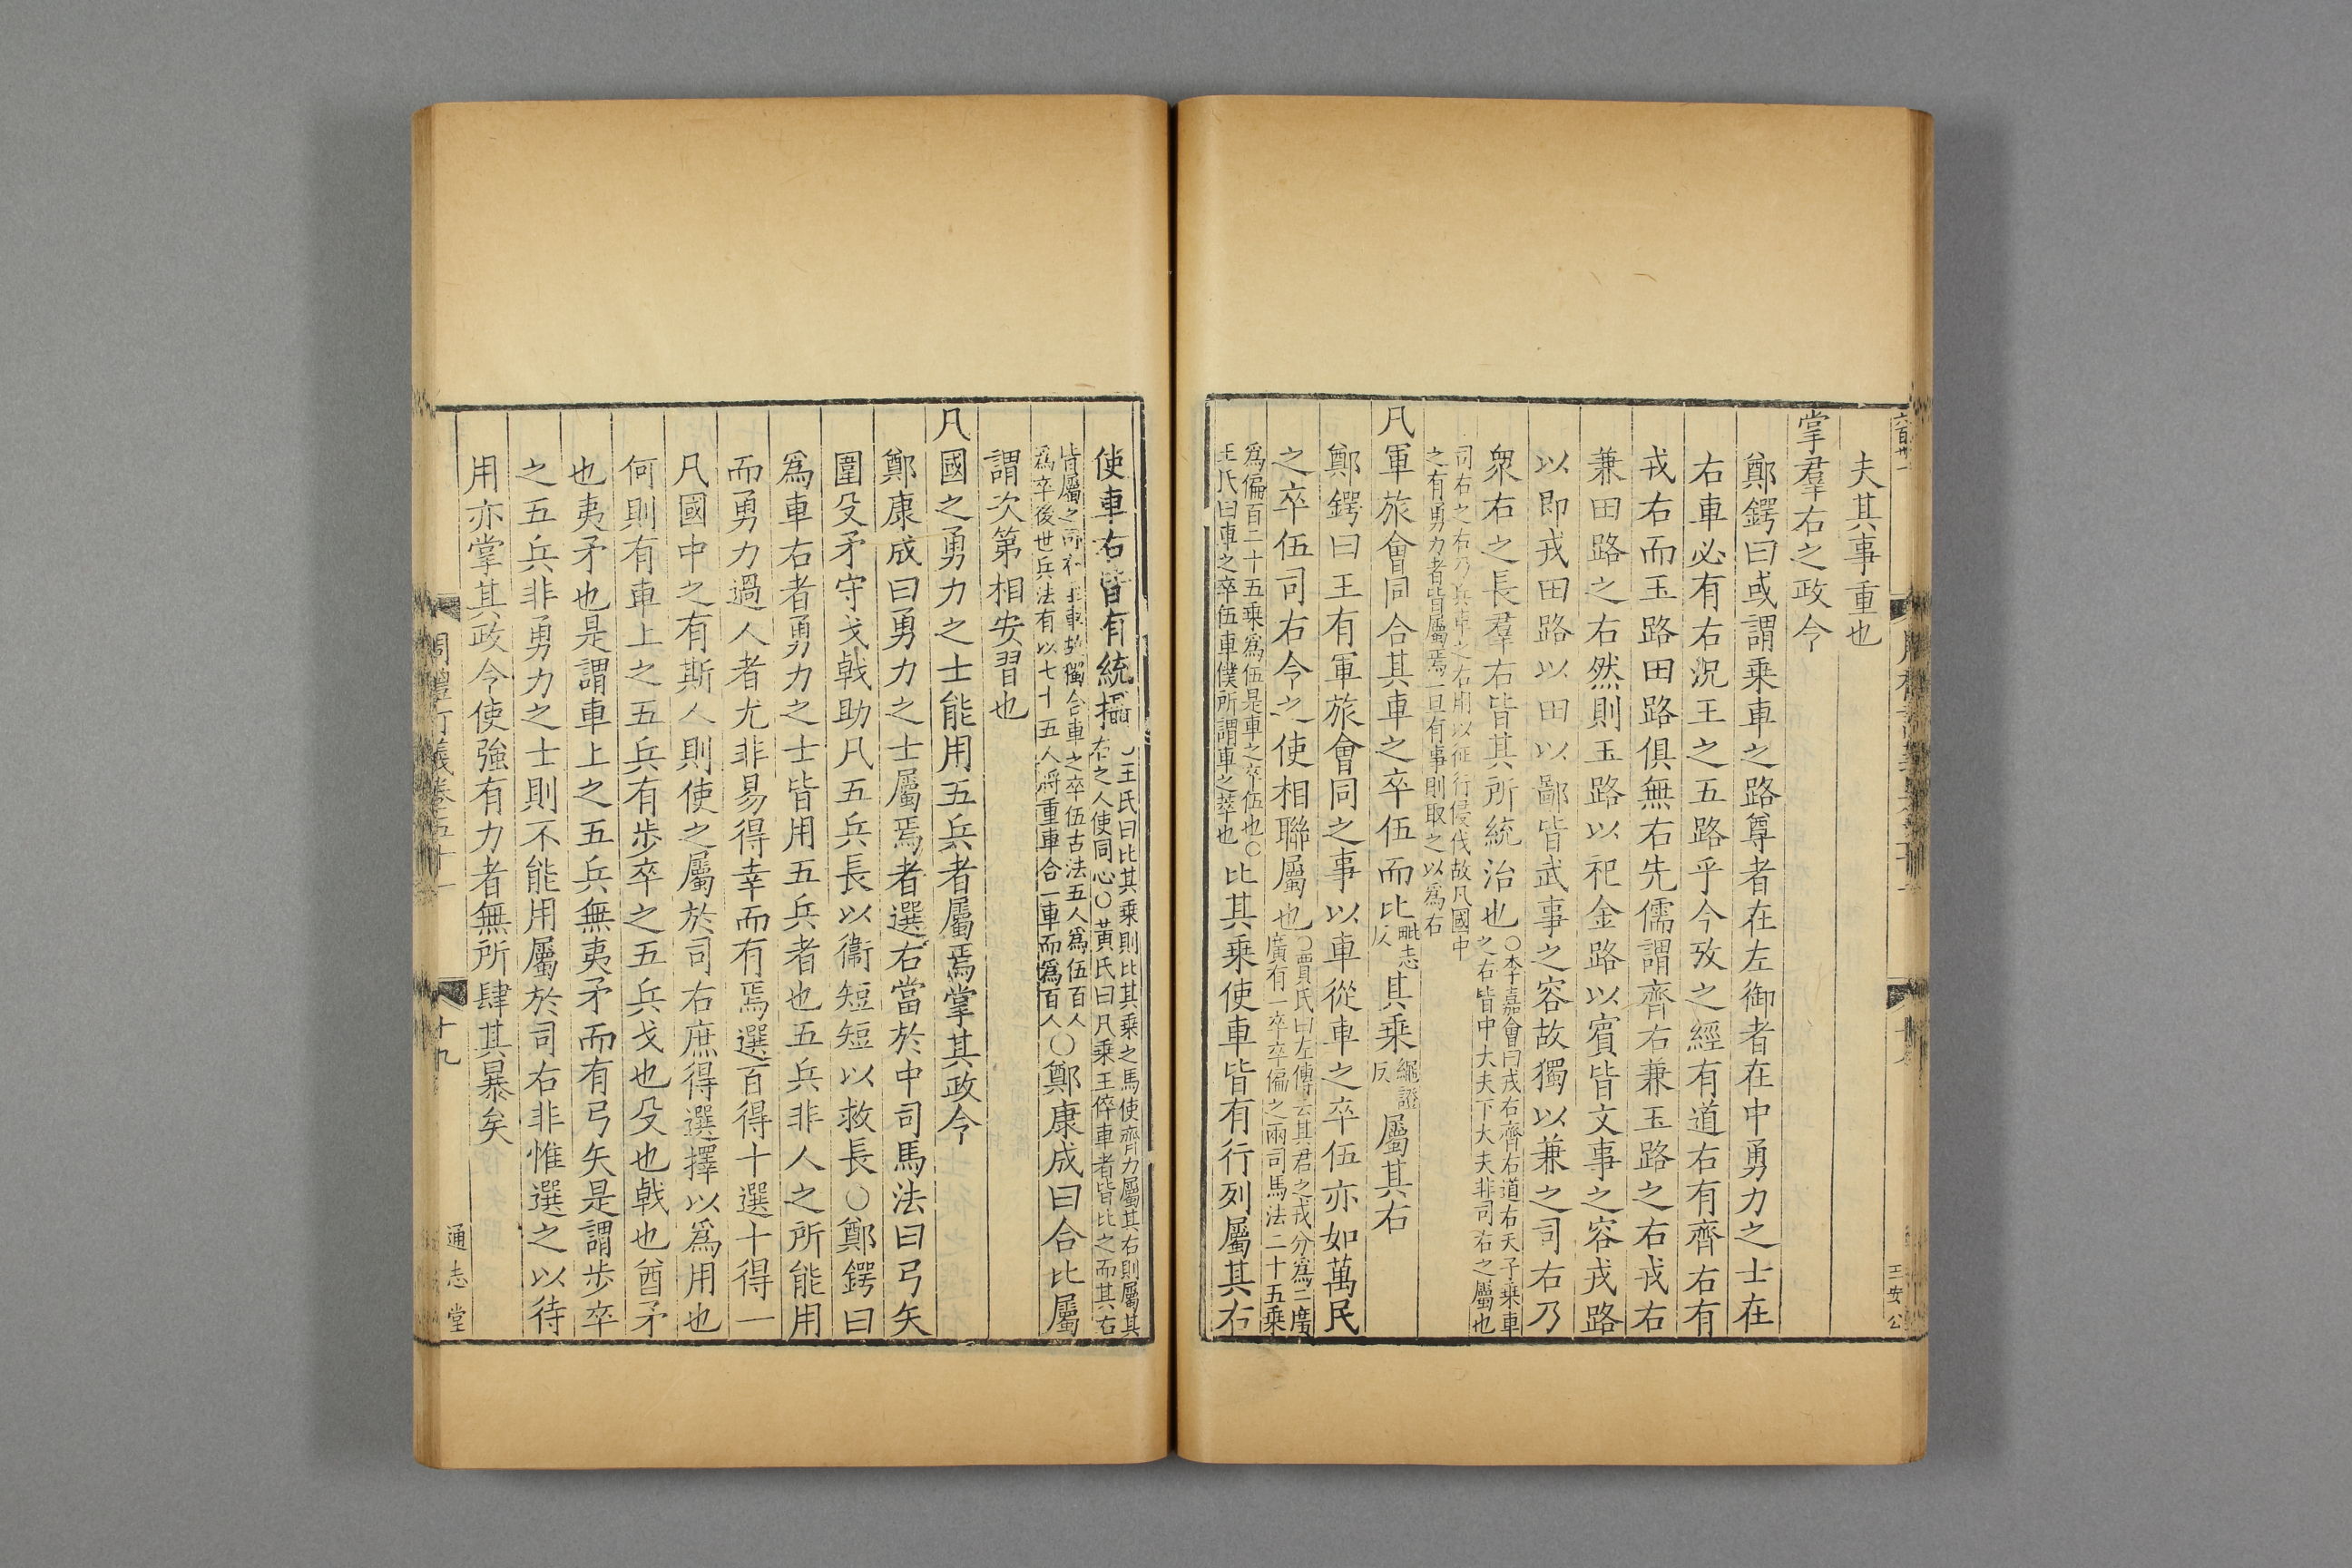 夫其事重也
掌羣右之政令
鄭鍔曰或謂乗車之路尊者在左御者在中勇力之士在
右車必有右況王之五路乎今攷之經有道右有齊右有
戎右而玉路田路俱無右先儒謂齊右兼玉路之右戎右
兼田路之右然則玉路以祀金路以賓皆文事之容戎路
以即戎田路以田以鄙皆武事之容故獨以兼之司右乃
衆右之長羣右皆其所統治也○李嘉會曰戎右齊右道右天子乗車
之右皆中大夫下大夫非司右之屬也
司右之右乃兵車之右用以征行侵伐故凡國中
之有勇力者皆屬焉一旦有事則取之以爲右
凡軍旅會同合其車之卒伍而比毗志反其乗繩證反屬其右
鄭鍔曰王有軍旅會同之事以車從車之卒伍亦如萬民
之卒伍司右令之使相聯屬也○賈氏曰左傳云其君之戎分爲二廣
廣有一卒卒偏之兩司馬法二十五乗
爲偏百二十五乗爲伍是車之卒伍也○
王氏曰車之卒伍車僕所謂車之萃也比其乗使車皆有行列屬其右
使車右皆有統攝○王氏曰比其乗則比其乗之馬使齊力屬其右則屬其
右之人使同心○黃氏曰凡乗王倅車者皆比之而其右
皆屬之車故獨合車之卒伍古法五人爲伍百人
爲卒後世兵法有以七十五人將重車合一車而爲百人○鄭康成曰合比屬
謂次第相安習也
凡國之勇力之士能用五兵者屬焉掌其政令
鄭康成曰勇力之士屬焉者選右當於中司馬法曰弓矢
圍殳矛守戈戟助凡五兵長以衞短短以救長○鄭鍔曰
爲車右者勇力之士皆用五兵者也五兵非人之所能用
而勇力過人者尤非易得幸而有焉選百得十選十得一
凡國中之有斯人則使之屬於司右庶得選擇以爲用也
何則有車上之五兵有步卒之五兵戈也殳也戟也酋矛
也夷矛也是謂車上之五兵無夷矛而有弓矢是謂步卒
之五兵非勇力之士則不能用屬於司右非惟選之以待
用亦掌其政令使強有力者無所肆其暴矣
周禮訂義卷五十一
十九
通志堂